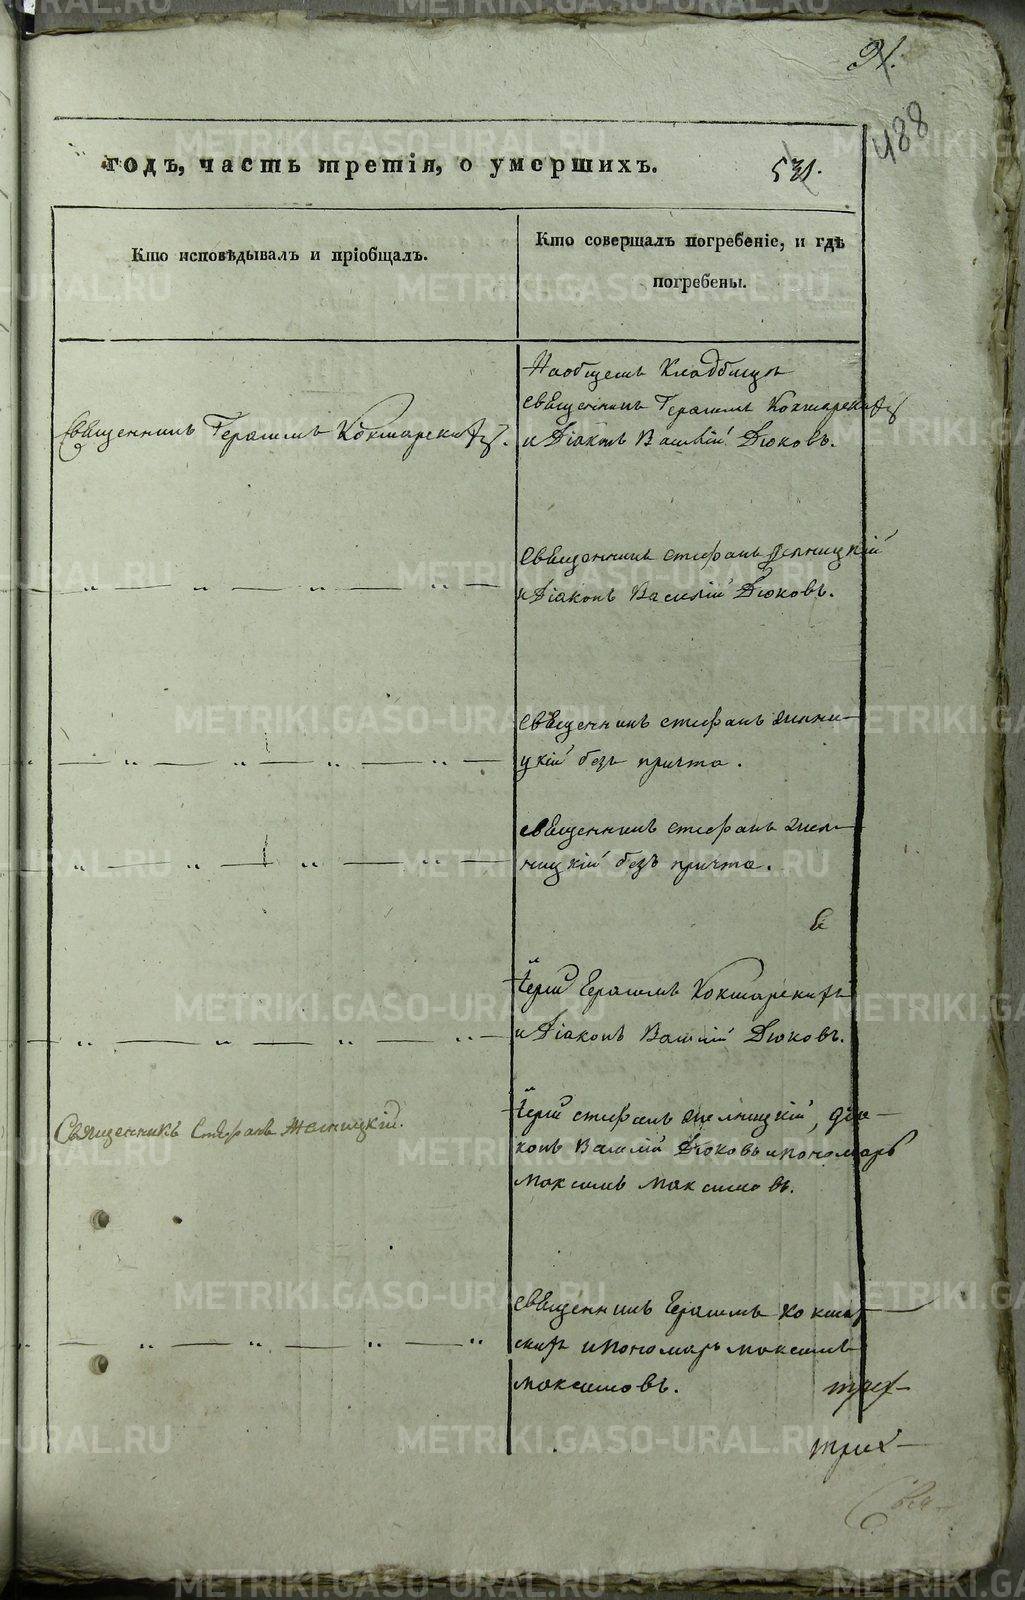 488
годъ, часть третія, о умершихъ. 531.
Кто исповѣдывалъ и пріобщалъ.
Кто совершалъ погребеніе, и гдѣ
погребены.
На общемъ Кладбищѣ
Священникъ Герасимъ Кокшарскихъ
Священникъ Герасимъ Кокшарскихъ.
и Діаконъ Василій Дюковъ.
Священникъ Стефанъ
и Діаконъ Василій Дюковъ.
Священникъ Стефанъ
цкій безъ причта.
Священникъ Стефанъ
ницкій безъ причта.
Іерей Герасимъ Кокшарскихъ
и Діаконъ Василій Дюковъ.
Священникъ Стефанъ
Іерей Стефанъ діа-
конъ Василій Дюковъ и пономарь
Максимъ Максимовъ.
Священникъ Герасимъ Кокшар-
скихъ и пономарь Максимъ
Максимовъ.
METRIKI.GASO-URAL.RU